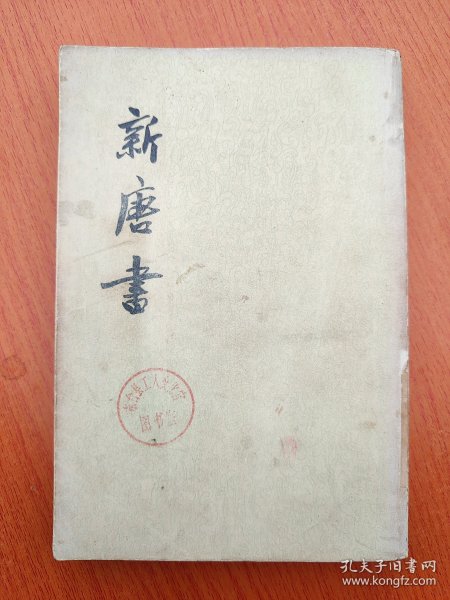 新唐書
工人文化宫
图书馆
孔夫子旧书网
www.kongfz.com